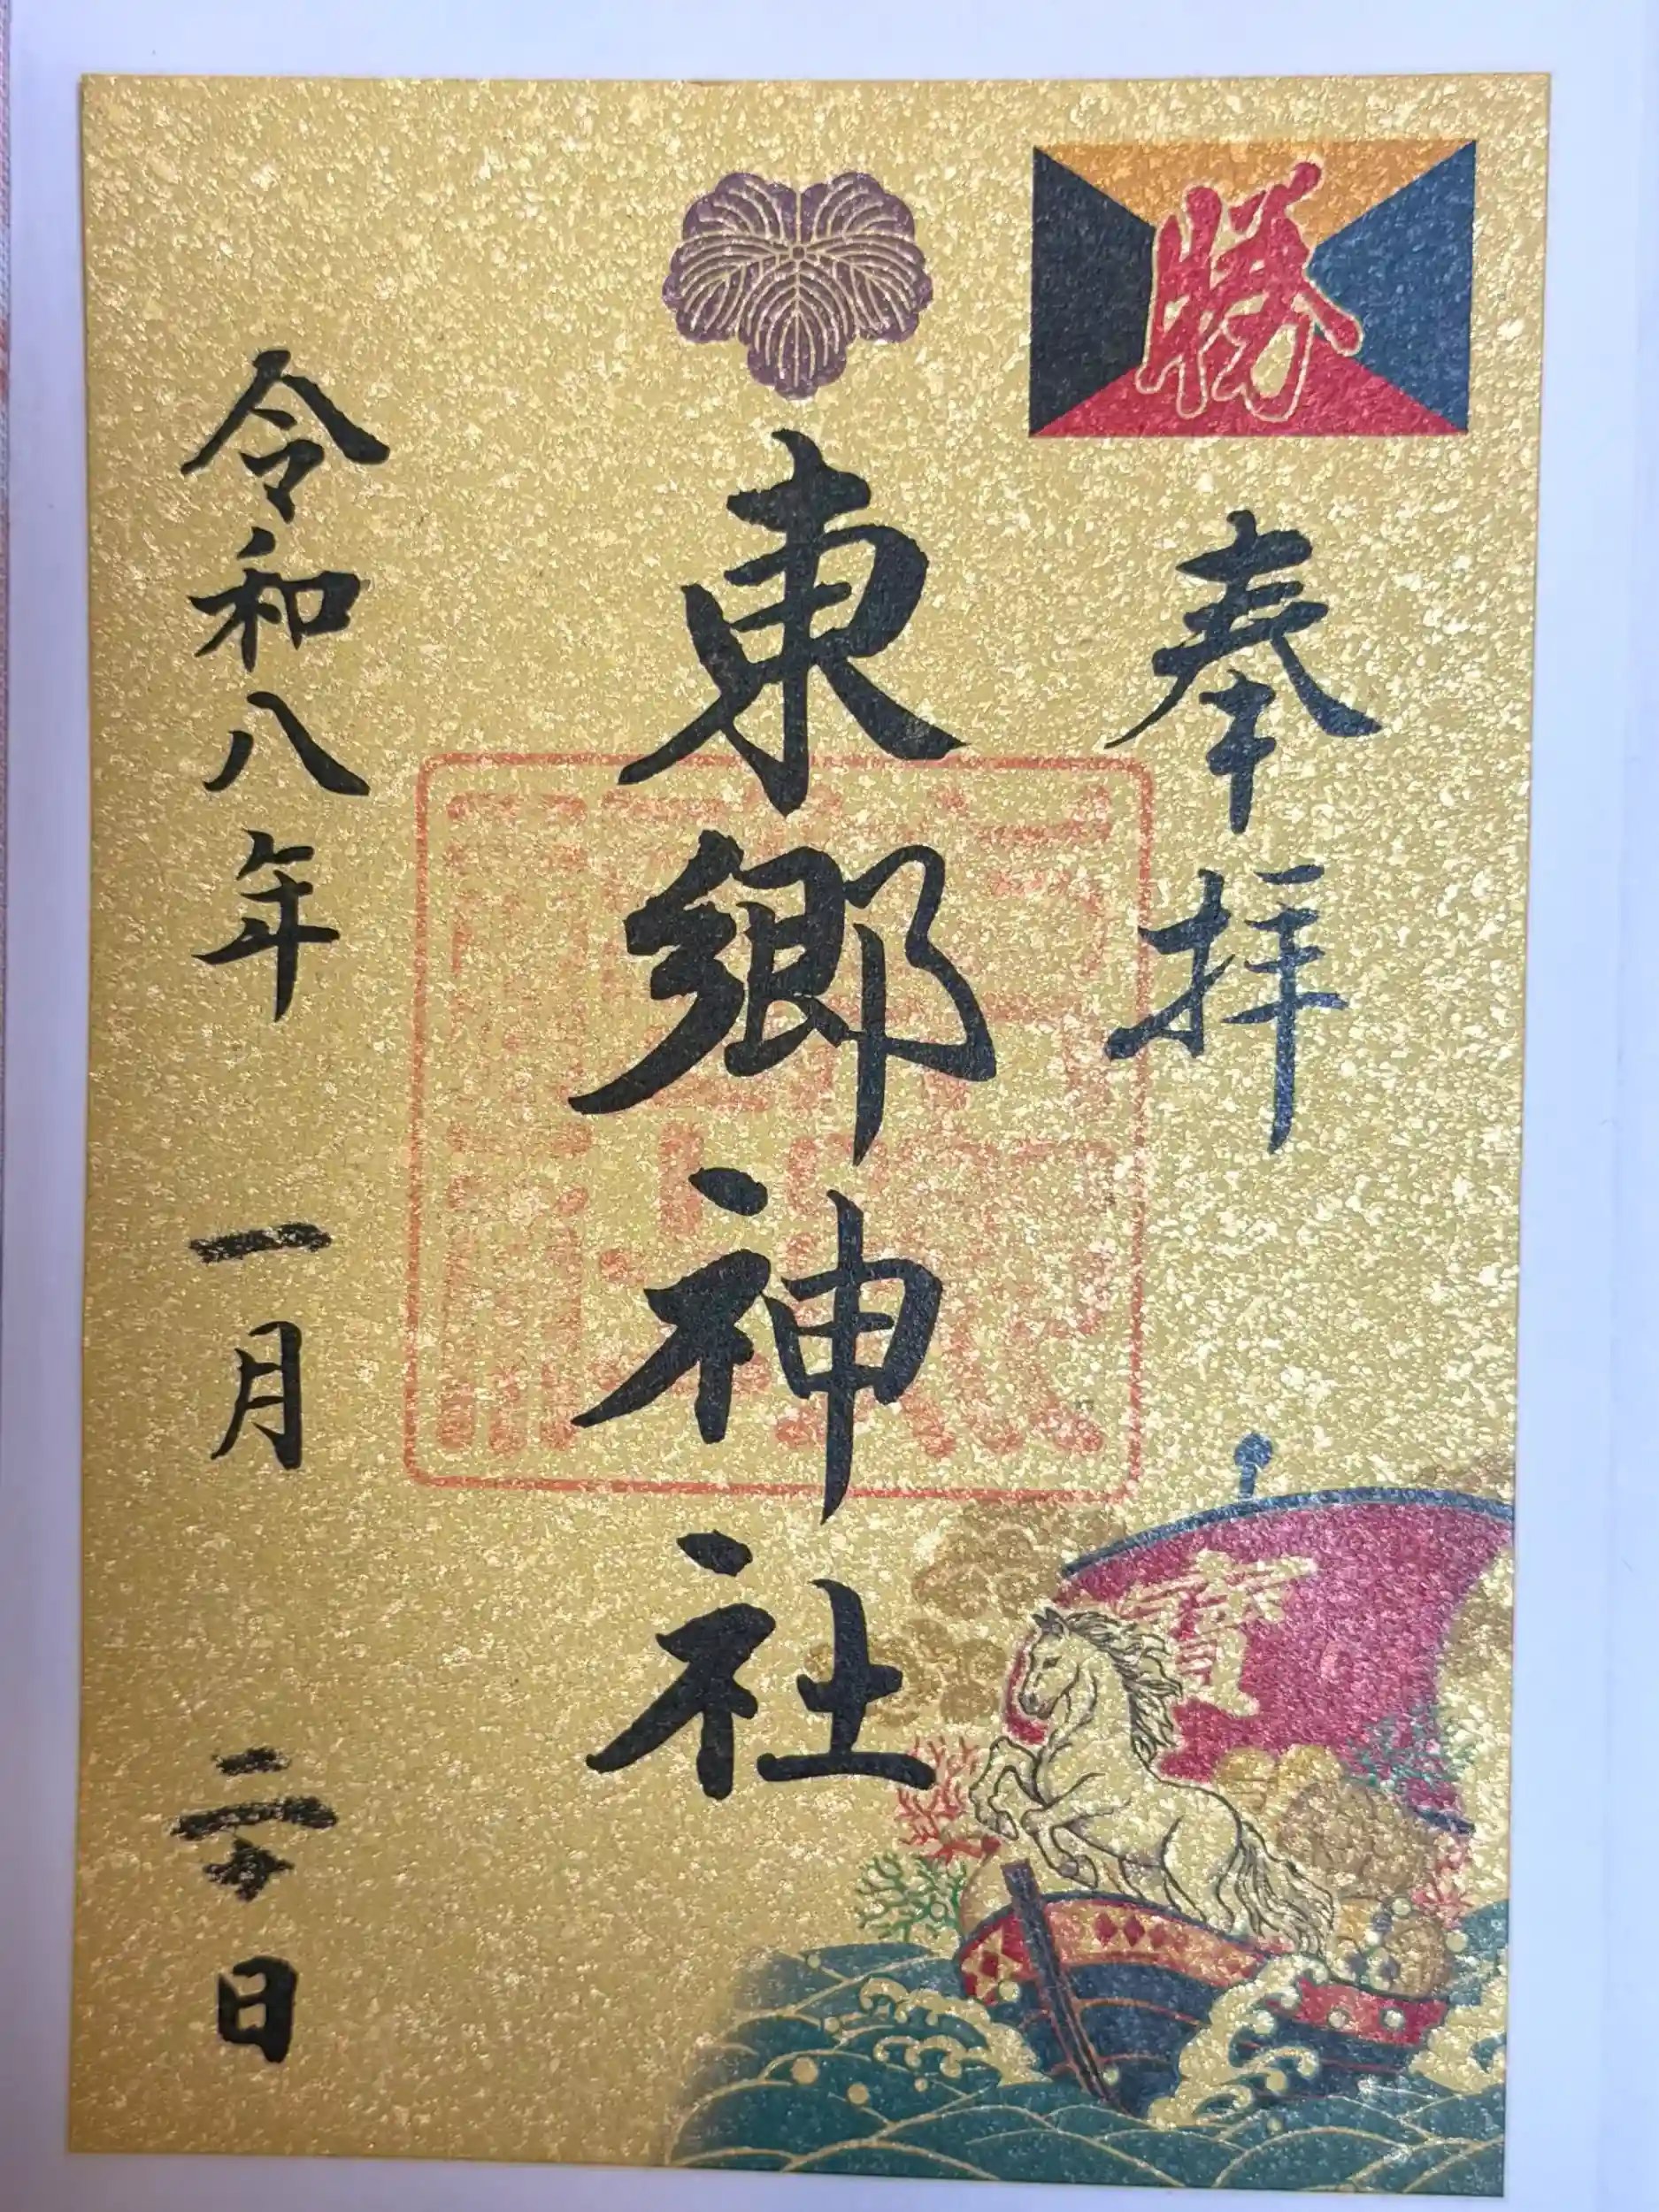 勝
奉拝
東郷神社
令和八年 一月 日
寶